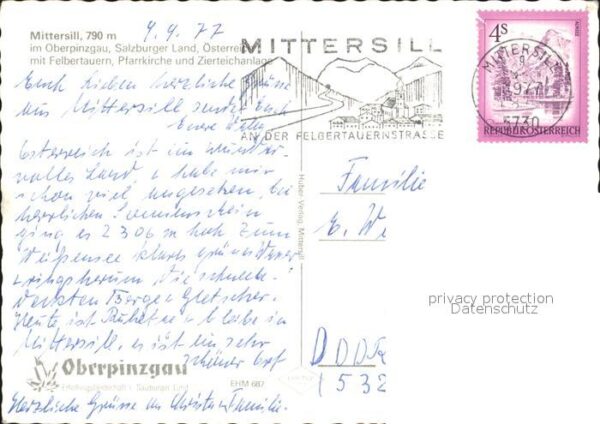 Mittersill, 790 m
im Oberpinzgau, Salzburger Land, Österrei
mit Felbertauern, Pfarrkirche und Zierteichanlage
9.9.77
Euch lieben herzliche Grüsse
aus Mittersill sendet Euch
Eure
Österreich ist ein wunder-
volles Land u habe mir
schon viel angesehen, bei
herrlichen Sonnenschein
ging es 2306 m hoch zum
Weißensee klares grünes Wasser
ringsherum die schnee-
deckten Berge u Gletscher.
Heute ist Ruhetag u bleibe in
Mittersill, es ist ein sehr
schöner Ort
Oberpinzgau
Erholungslandschaft i. Taubuner Land
EHM 687
Herzliche Grüsse an Christa u Familie.
Huber Verlag, Mittersill
MITTERSILL
AN DER FELBERTAUERNSTRASSE
4S
REPUBLIK ÖSTERREICH
MITTERSILL
5730
Familie
E. W
privacy protection
Datenschutz
DDR
1532